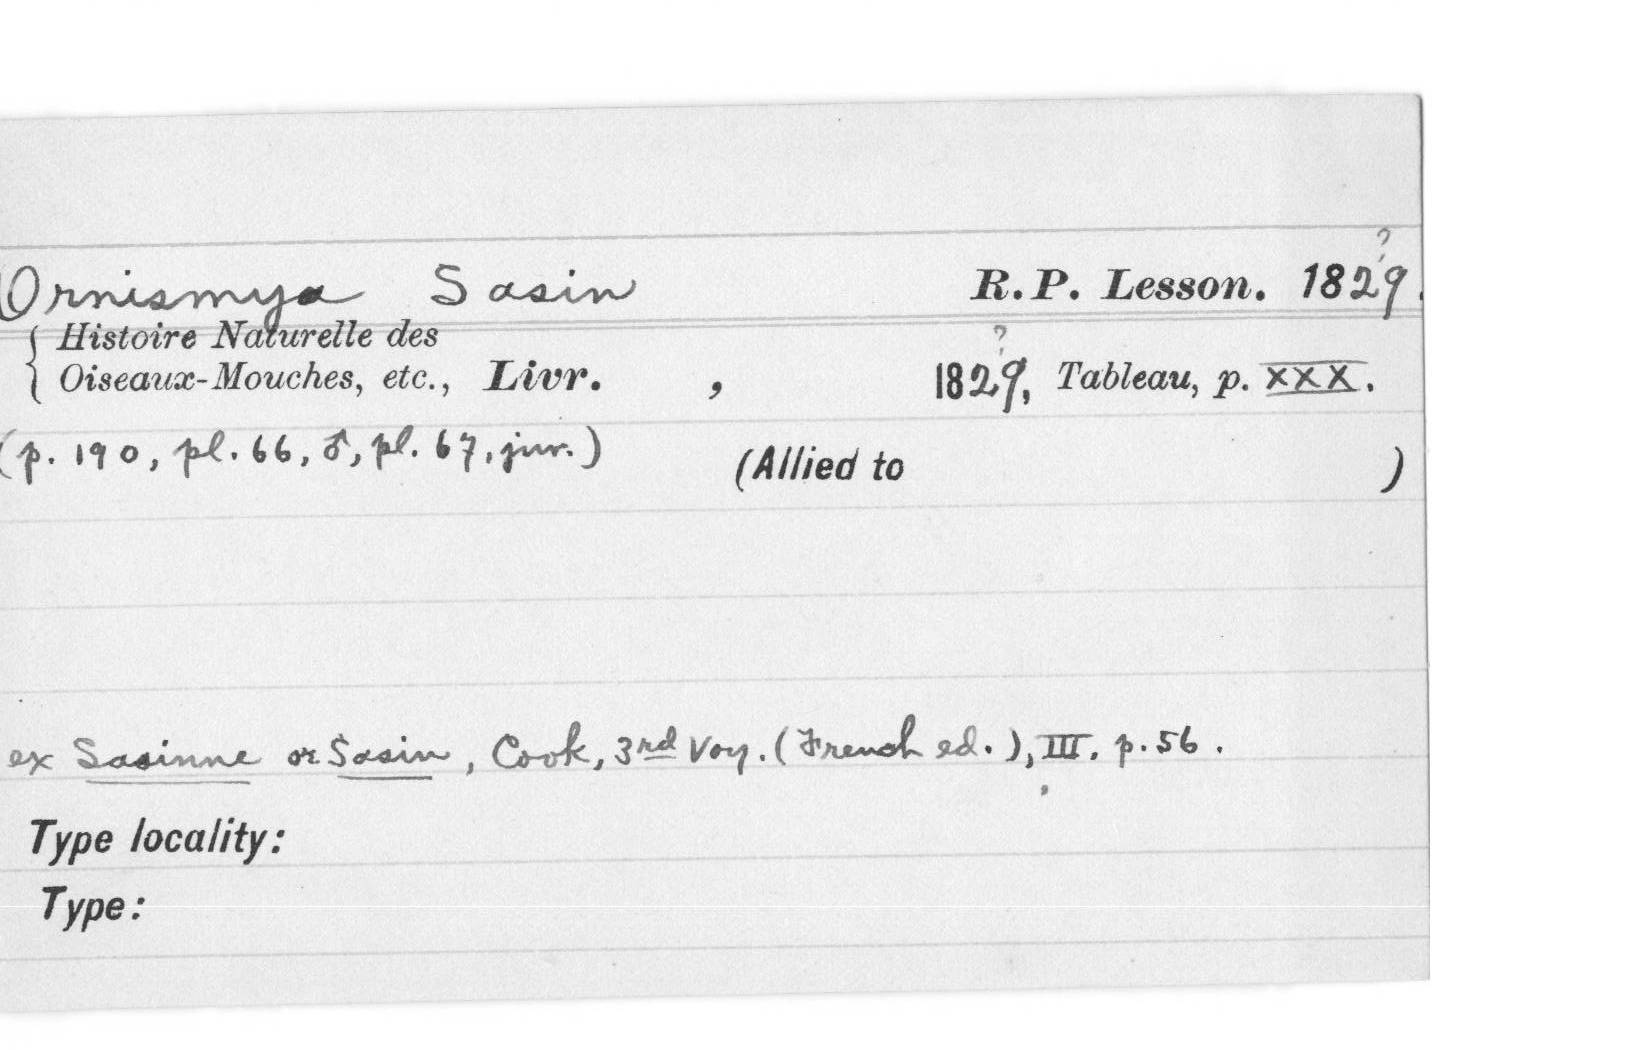 ?
Ornismya Sasin R.P. Lesson. 1829.
{ Histoire Naturelle des
?
Oiseaux-Mouches, etc., Livr. , 1829, Tableau, p. XXX.
(p. 190, pl. 66, ♂, pl. 67, juv.)
(Allied to )
ex Sasinne or Sasin, Cook, 3rd Voy. (French ed.), III. p. 56.
Type locality:
Type: